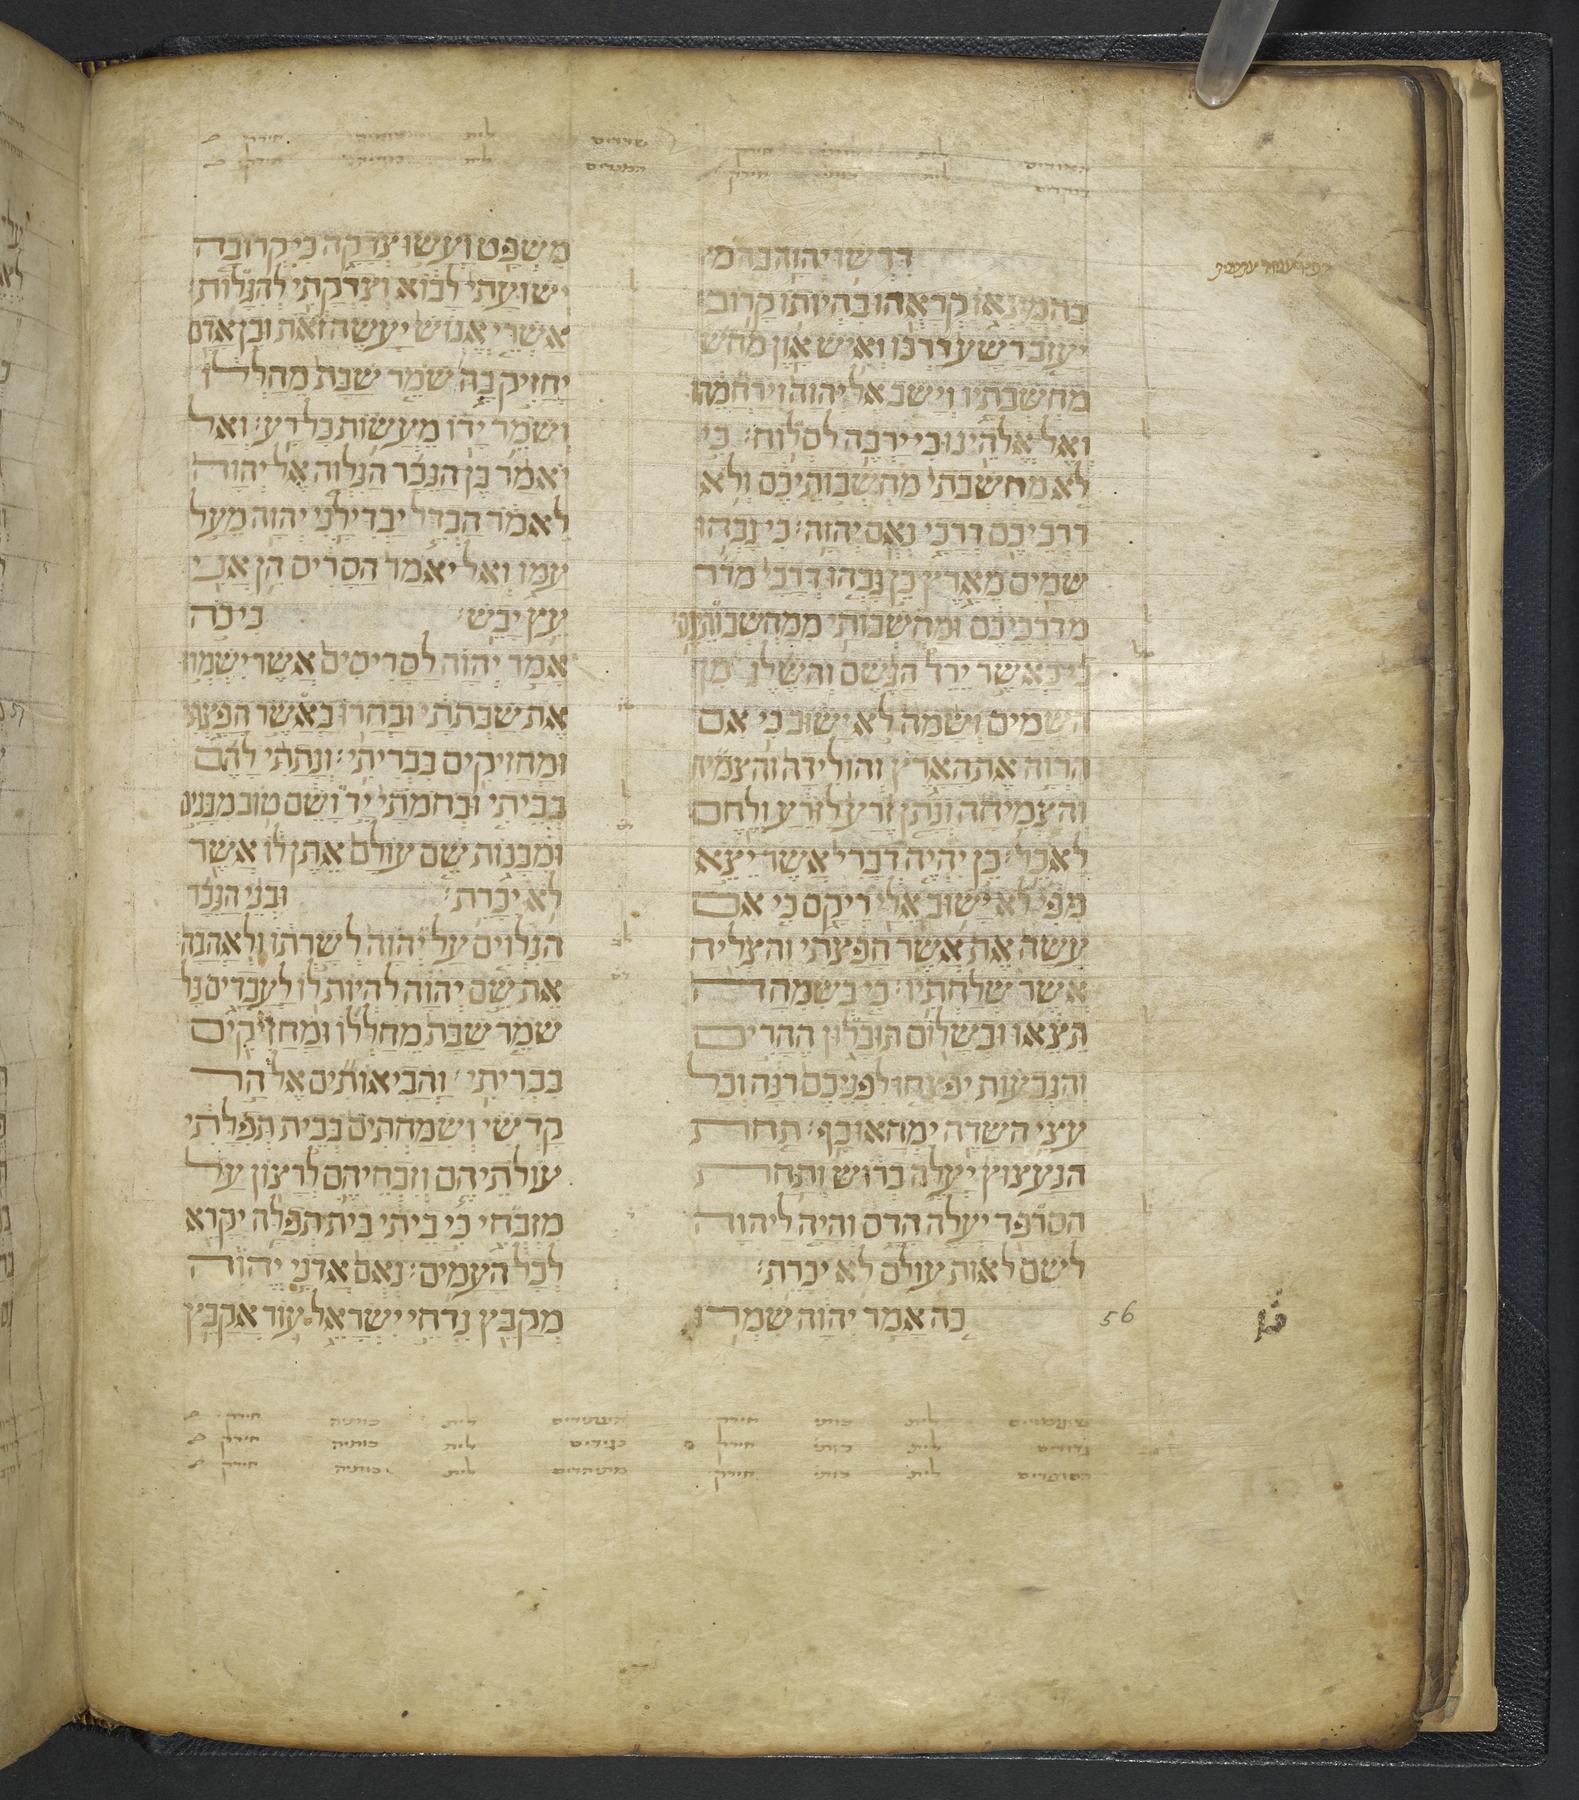 דרשו יהוה בהמ
בהמצאו קראהו בהיותו קרוב
יעזב רשע דרכו ואיש און מחש
מחשבתיו וישב אל יהוה וירחמהו
ואל אלהינו כי ירבה לסלוח׃ כי
לא מחשבתי מחשבותיכם ולא
דרכיכם דרכי נאם יהוה׃ כי גבהו
שמים מארץ כן גבהו דרכי מדר
מדרכיכם ומחשבותי ממחשבותיכם׃
כי כאשר ירד הגשם והשלג מן
השמים ושמה לא ישוב כי אם
הרוה את הארץ והולידה והצמיח
והצמיחה ונתן זרע לזרע ולחם
לאכל׃ כן יהיה דברי אשר יצא
מפי לא ישוב אלי ריקם כי אם
עשה את אשר חפצתי והצליח
אשר שלחתיו׃ כי בשמחה
תצאו ובשלום תובלון ההרים
והגבעות יפצחו לפניכם רנה וכל
עצי השדה ימחאו כף׃ תחת
הנעצוץ יעלה ברוש ותחת
הסרפד יעלה הדס והיה ליהוה
לשם לאות עולם לא יכרת׃
כה אמר יהוה שמרו
משפט ועשו צדקה כי קרובה
ישועתי לבוא וצדקתי להגלות׃
אשרי אנוש יעשה זאת ובן אדם
יחזיק בה שמר שבת מחללו
ושמר ידו מעשות כל רע׃ ואל
יאמר בן הנכר הנלוה אל יהוה
לאמר הבדל יבדילני יהוה מעל
עמו ואל יאמר הסריס הן אני
עץ יבש׃ כי כה
אמר יהוה לסריסים אשר ישמרו
את שבתתי ובחרו באשר חפצתי
ומחזיקים בבריתי׃ ונתתי להם
בביתי ובחומתי יד ושם טוב מבנים
ומבנות שם עולם אתן לו אשר
לא יכרת׃ ובני הנכר
הנלוים על יהוה לשרתו ולאהבה
את שם יהוה להיות לו לעבדים כל
שמר שבת מחללו ומחזיקים
בבריתי׃ והביאותים אל הר
קדשי ושמחתים בבית תפלתי
עולתיהם וזבחיהם לרצון על
מזבחי כי ביתי בית תפלה יקרא
לכל העמים׃ נאם אדני יהוה
מקבץ נדחי ישראל עוד אקבץ
56